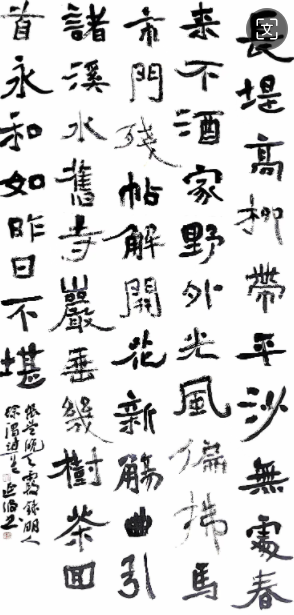 長堤高柳帶平沙無處春
來不酒家野外光風偏拂馬
市門殘帖解開花新觴曲引
諸溪水舊寺巖垂幾樹茶回
首永和如昨日不堪
悵望晚天霞錄明人
徐渭詩